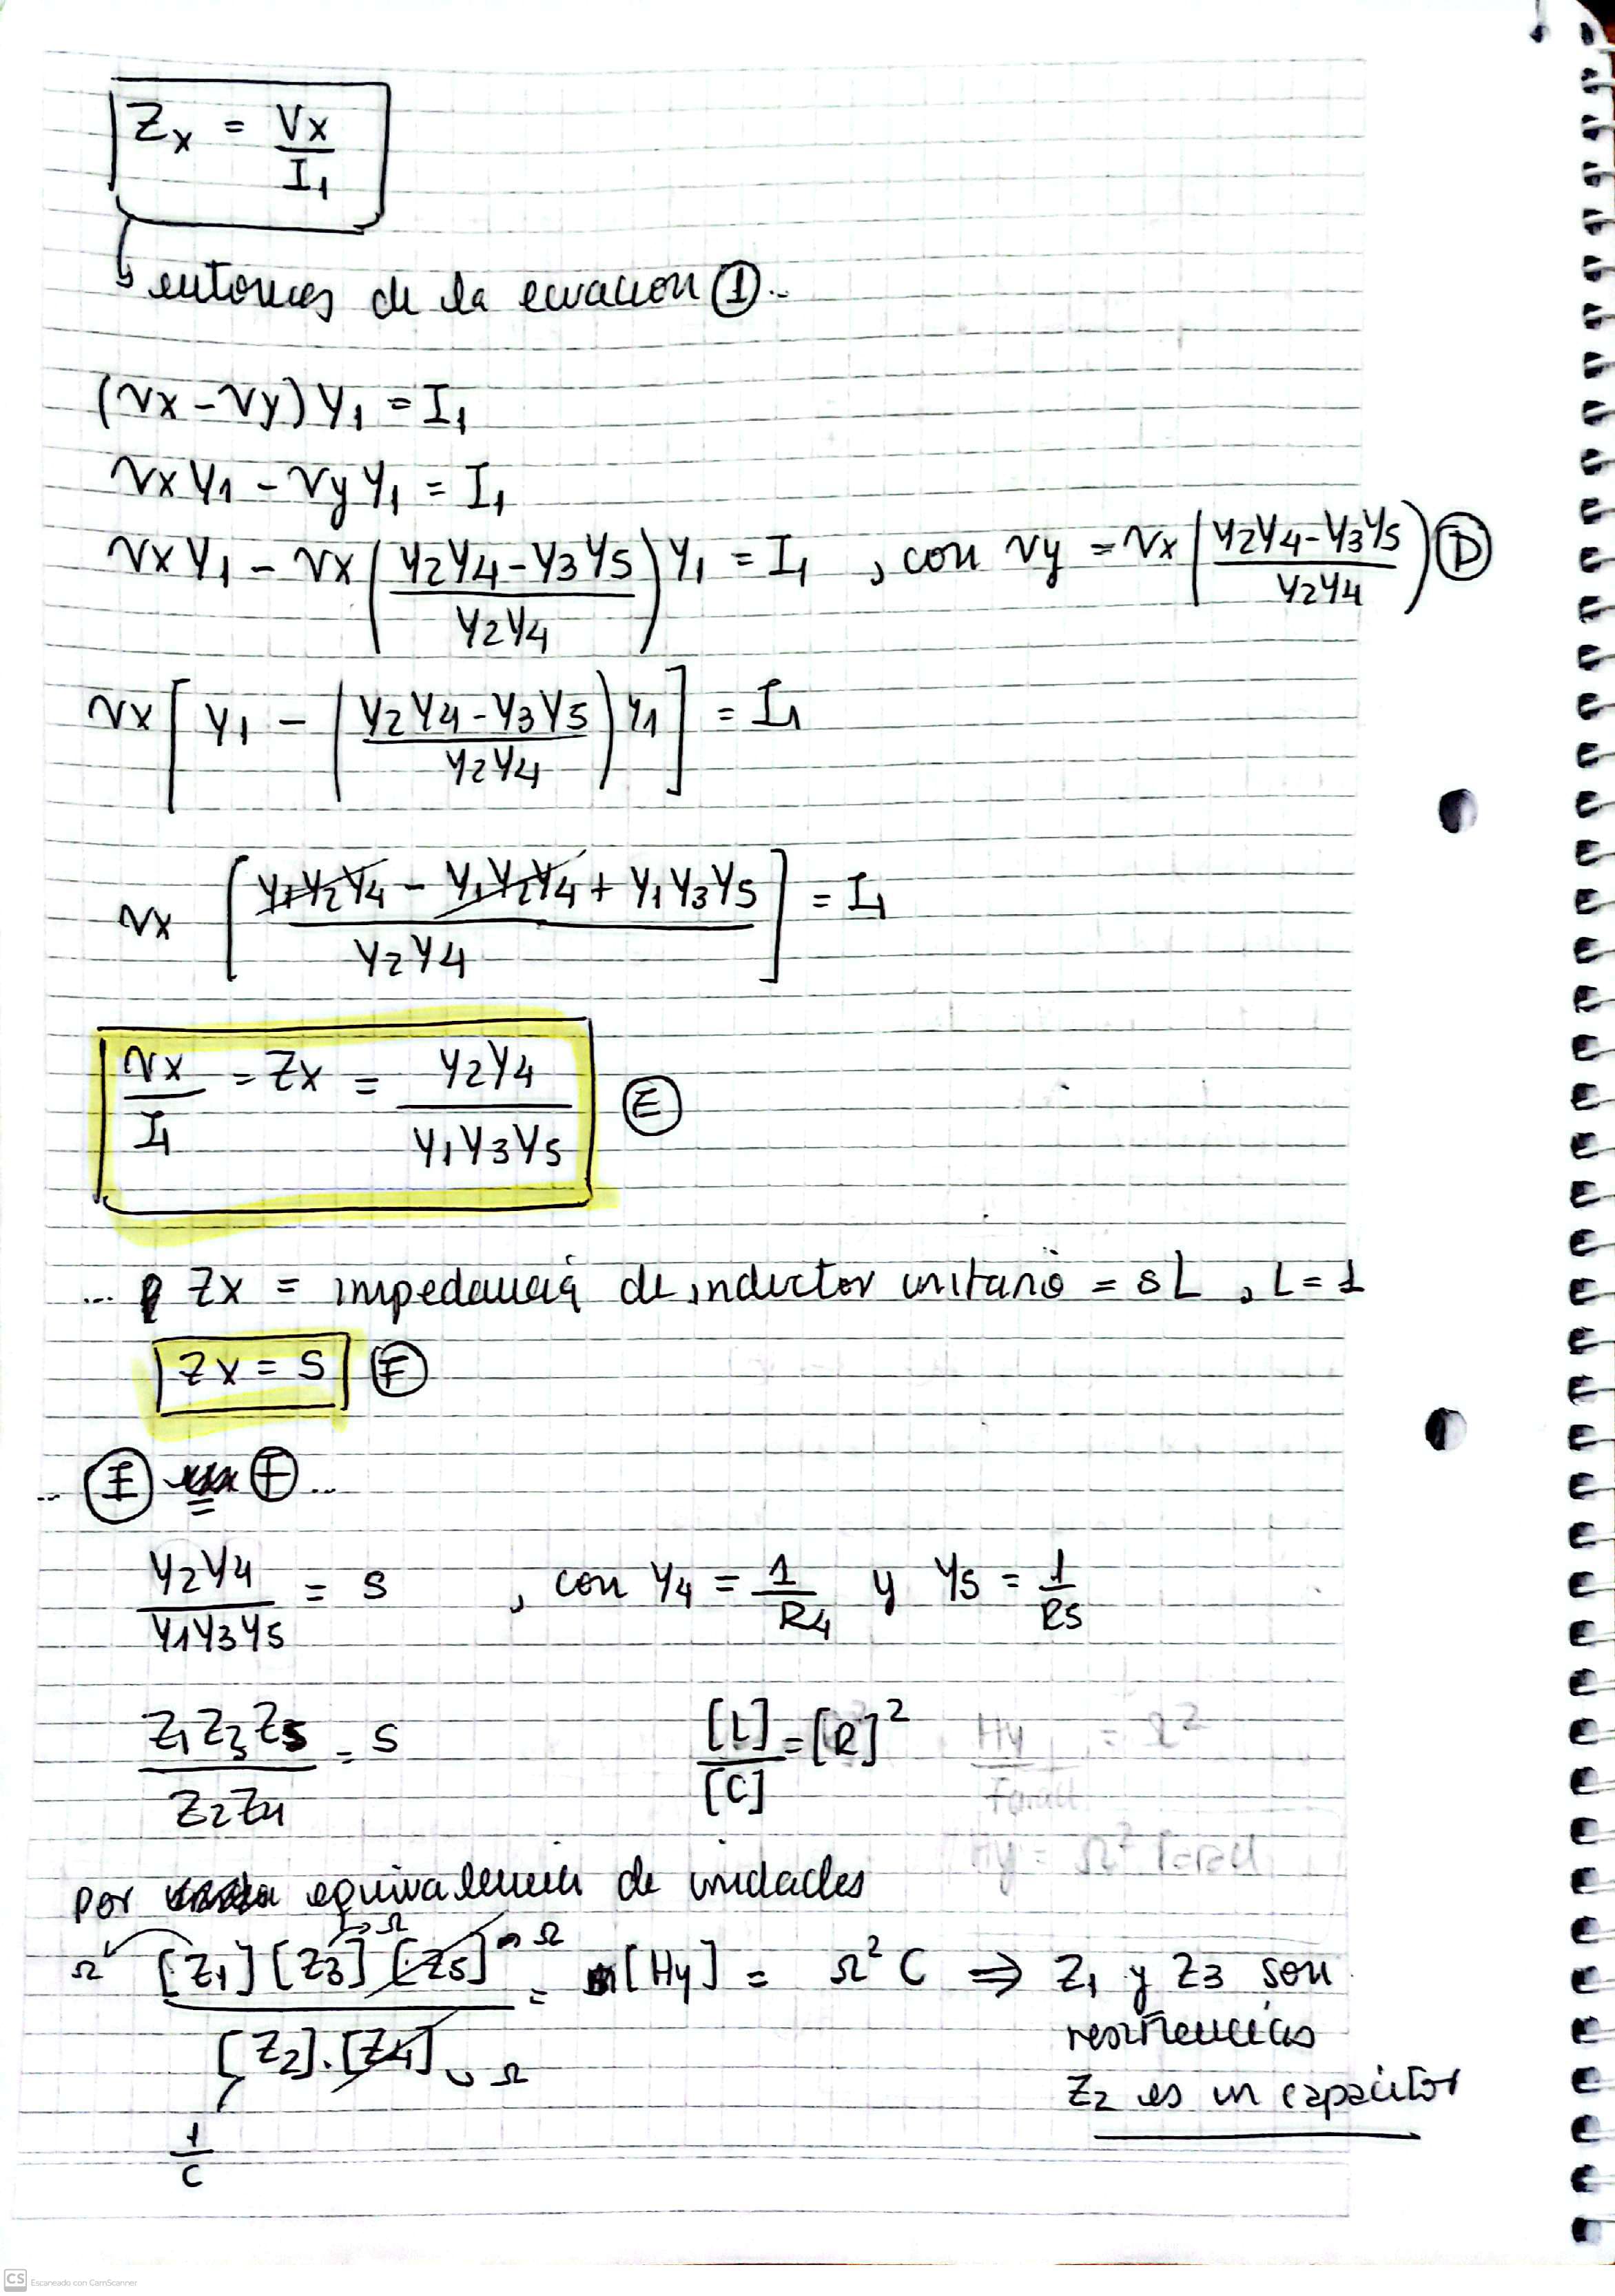 Zx = Vx / I1
entonces de la ecuacion ① ..
(Vx - Vy) Y1 = I1
Vx Y1 - Vy Y1 = I1
Vx Y1 - Vx ( (Y2Y4 - Y3Y5) / Y2Y4 ) Y1 = I1 , con Vy = Vx ( (Y2Y4 - Y3Y5) / Y2Y4 ) Ⓓ
Vx [ Y1 - ( (Y2Y4 - Y3Y5) / Y2Y4 ) Y1 ] = I1
Vx [ (Y1Y2Y4 - Y1Y2Y4 + Y1Y3Y5) / Y2Y4 ] = I1
Vx / I1 = Zx = Y2Y4 / Y1Y3Y5 Ⓔ
... Zx = impedancia de inductor unitario = sL , L = 1
Zx = S Ⓕ
.. Ⓔ = Ⓕ ...
Y2Y4 / Y1Y3Y5 = s , con Y4 = 1 / R4 y Y5 = 1 / R5
Z1Z3Z5 / Z2Z4 = s [L] / [C] = [R]² Hy / Farad = Ω²
Hy = Ω² Farad
por equivalencia de unidades
Ω [Z1] [Z3] Ω [Z5] Ω / [Z2] . [Z4] Ω = [Hy] = Ω² C ⇒ Z1 y Z3 son
resistencias
Z2 es un capacitor
1 / C
CS Escaneado con CamScanner